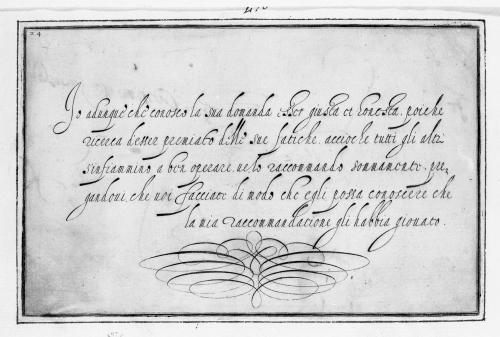 24
Io adunque che conosco la sua domanda esser giusta et honesta, poiche
ricerca d'esser premiato delle sue fatiche, accioche tutti gli altri
s'infiammino a ben operare, ve lo raccommando sommamente, pre-
gandovi, che voi facciate di modo che egli possa conoscere che
la mia raccommandatione gli habbia giovato.